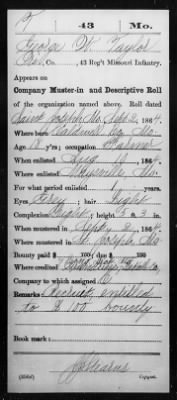 T 43 Mo.
George W. Taylor
Co., 43 Reg't Missouri Infantry.
Appears on
Company Muster-in and Descriptive Roll
of the organization named above. Roll dated
Saint Joseph Mo. Sept 2, 1864.
Where born Caldwell Co. Mo.
Age 18 y'rs; occupation Farmer
When enlisted Aug 10, 1864.
Where enlisted Maysville, Mo.
For what period enlisted years.
Eyes Grey; hair Light
Complexion Bright; height 5 ft. 3 in.
When mustered in Sept 2, 1864.
Where mustered in St. Joseph, Mo.
Bounty paid $ 100; due $ 100
Where credited
Company to which assigned
Remarks: Recruit, entitled
to $100 bounty
Book mark:
Stearns
Copyist.